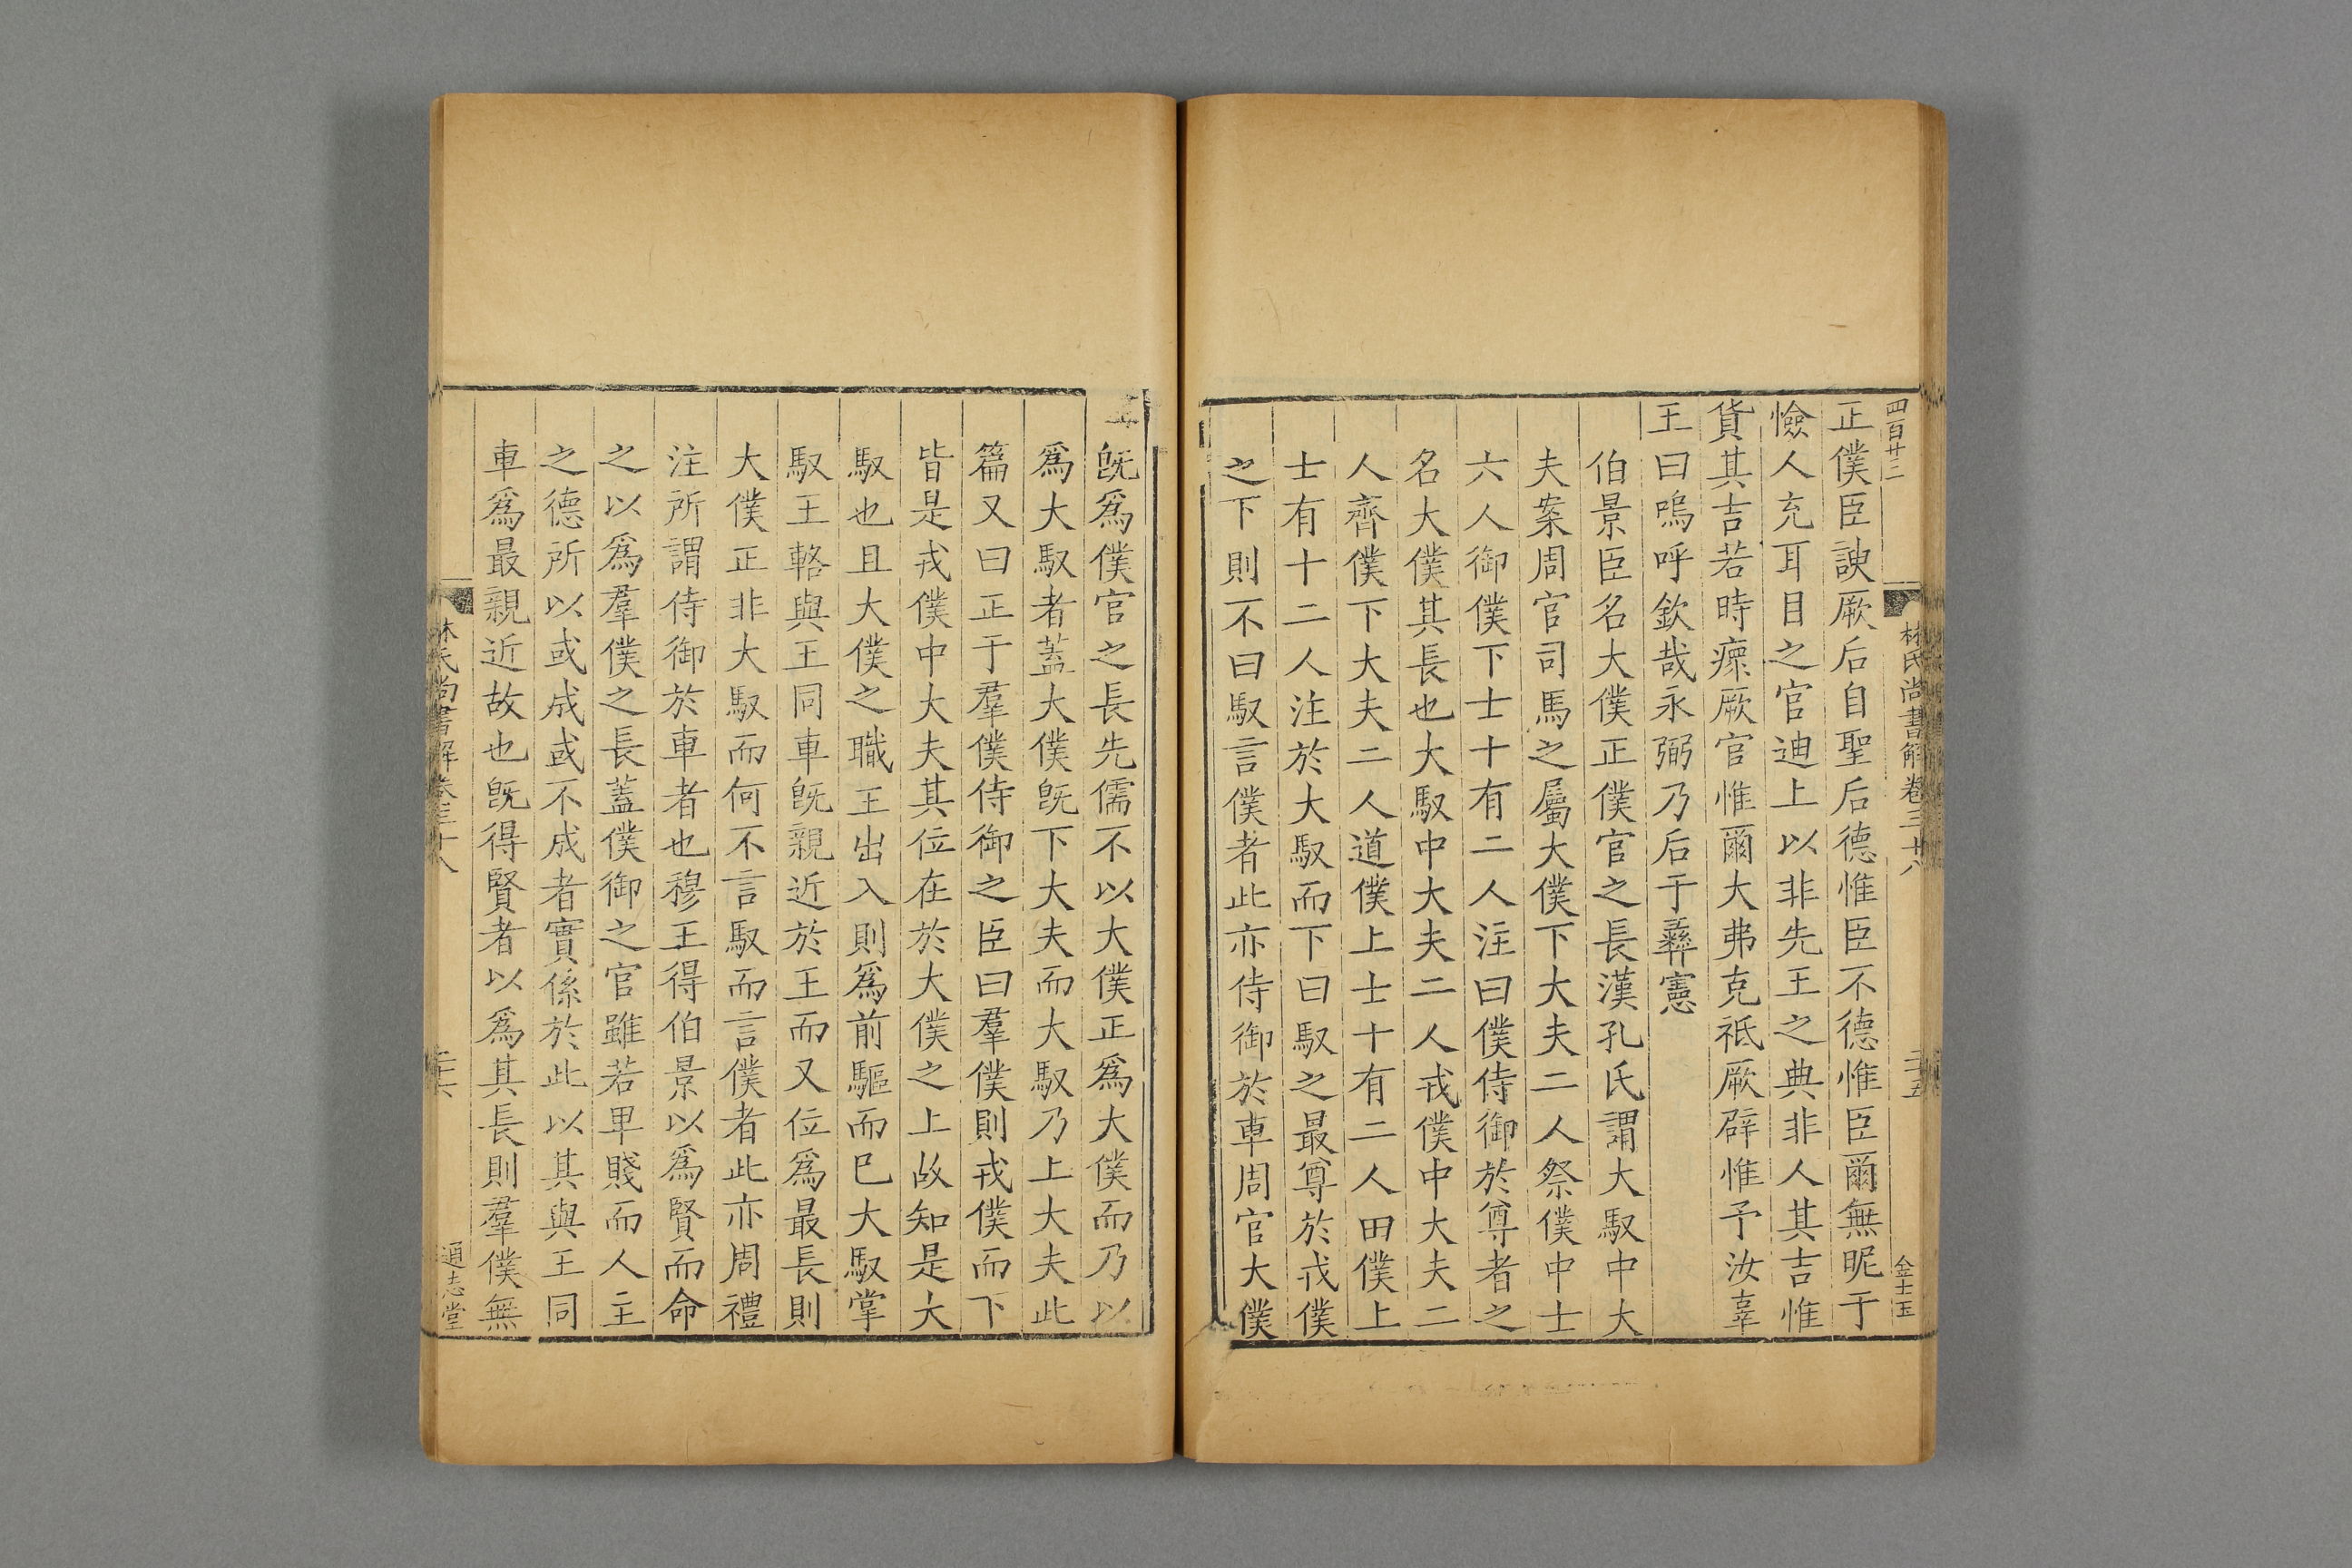 四百廿三
林氏尚書解卷三十八
二十五
金士玉
正僕臣諛厥后自聖后德惟臣不德惟臣爾無昵于
憸人充耳目之官迪上以非先王之典非人其吉惟
貨其吉若時瘝厥官惟爾大弗克祗厥辟惟予汝辜
王曰嗚呼欽哉永弼乃后于彝憲
伯景臣名大僕正僕官之長漢孔氏謂大馭中大
夫案周官司馬之屬大僕下大夫二人祭僕中士
六人御僕下士十有二人注曰僕侍御於尊者之
名大僕其長也大馭中大夫二人戎僕中大夫二
人齊僕下大夫二人道僕上士十有二人田僕上
士有十二人注於大馭而下曰馭之最尊於戎僕
之下則不曰馭言僕者此亦侍御於車周官大僕
旣爲僕官之長先儒不以大僕正爲大僕而乃以
爲大馭者蓋大僕旣下大夫而大馭乃上大夫此
篇又曰正于羣僕侍御之臣曰羣僕則戎僕而下
皆是戎僕中大夫其位在於大僕之上故知是大
馭也且大僕之職王出入則爲前驅而巳大馭掌
馭王輅與王同車旣親近於王而又位爲最長則
大僕正非大馭而何不言馭而言僕者此亦周禮
注所謂侍御於車者也穆王得伯景以爲賢而命
之以爲羣僕之長蓋僕御之官雖若卑賤而人主
之德所以或成或不成者實係於此以其與王同
車爲最親近故也旣得賢者以爲其長則羣僕無
林氏尚書解卷三十八
二十六
通志堂